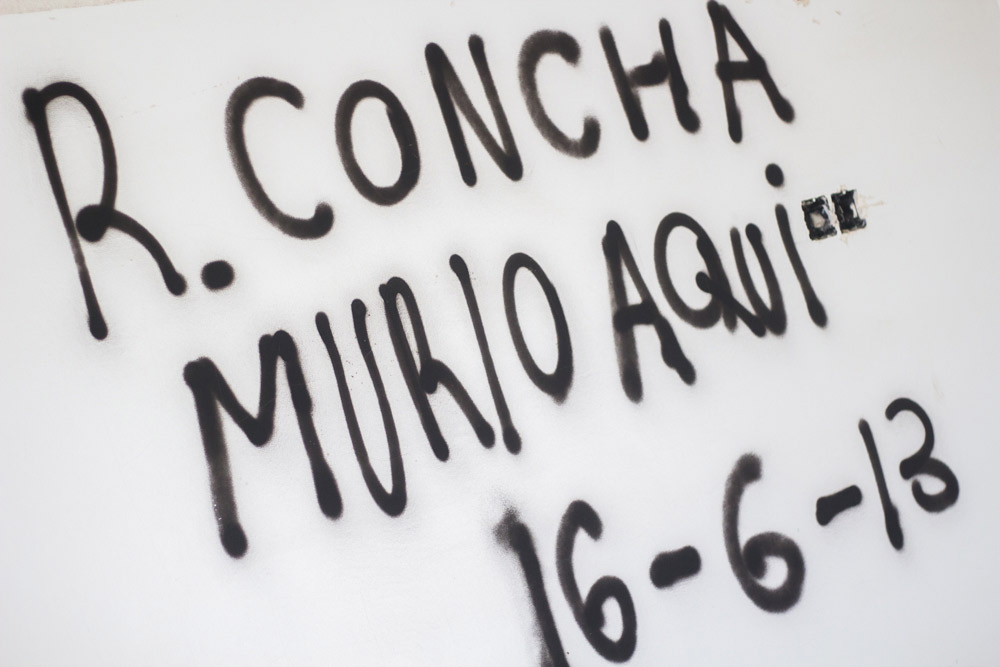 R. CONCHA
MURIO AQUi
16-6-13